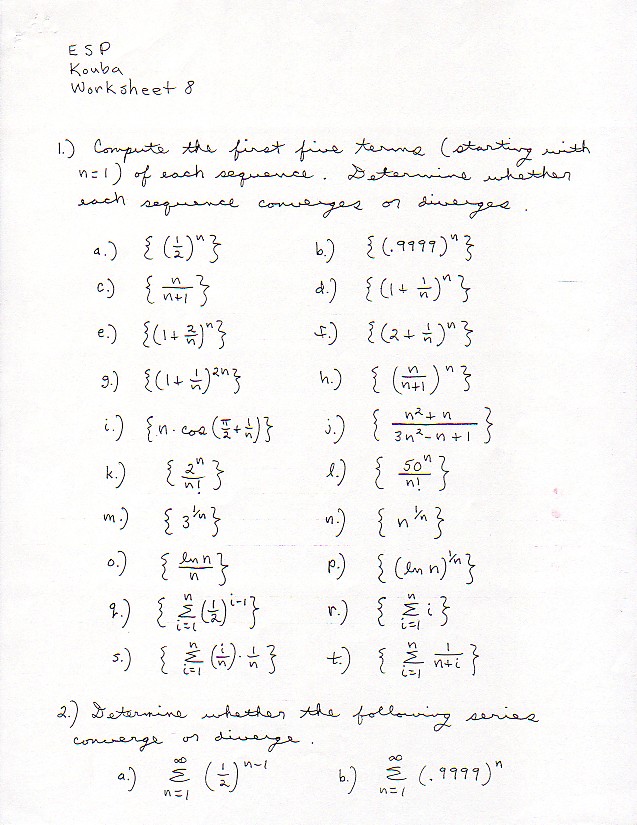 ESP
Kouba
Worksheet 8
1.) Compute the first five terms (starting with
n=1) of each sequence. Determine whether
each sequence converges or diverges.
a.) { (1/2)^n } b.) { (.9999)^n }
c.) { n/(n+1) } d.) { (1 + 1/n)^n }
e.) { (1 + 2/n)^n } f.) { (2 + 1/n)^n }
g.) { (1 + 1/n)^{2n} } h.) { (n/(n+1))^n }
i.) { n · cos(π/2 + 1/n) } j.) { (n² + n)/(3n² - n + 1) }
k.) { 2^n/n! } l.) { 50^n/n! }
m.) { 3^{1/n} } n.) { n^{1/n} }
o.) { ln n/n } p.) { (ln n)^{1/n} }
q.) { Σ_{i=1}^{n} (1/2)^{i-1} } r.) { Σ_{i=1}^{n} i }
s.) { Σ_{i=1}^{n} (i/n) · 1/n } t.) { Σ_{i=1}^{n} 1/(n+i) }
2.) Determine whether the following series
converge or diverge.
a.) Σ_{n=1}^{∞} (1/2)^{n-1} b.) Σ_{n=1}^{∞} (.9999)^n